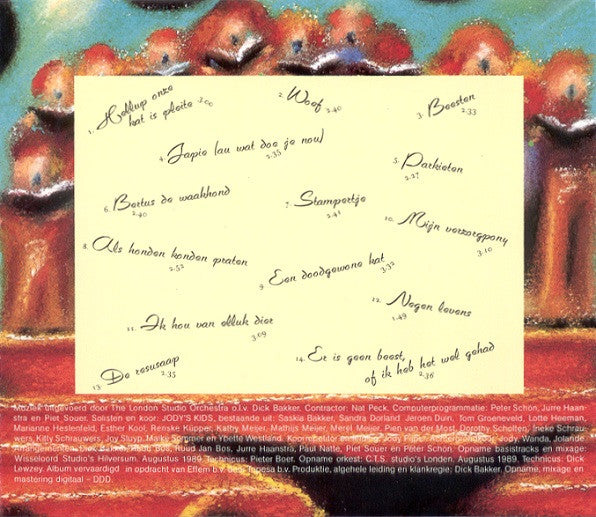 1. Hellup onze
kat is pleite 3.00
2. Woef
2.40
3. Beesten
2.33
4. Japie (au wat doe je nou)
2.35
5. Parkieten
2.27
6. Bertus de waakhond
2.40
7. Stampertje
2.41
8. Als honden konden praten
2.52
9. Een doodgewone kat
3.32
10. Mijn verzorgpony
3.10
11. Ik hou van elluk dier
3.09
12. Negen levens
1.49
13. De resusaap
2.35
14. Er is geen beest,
of ik heb het wel gehad
2.36
Muziek uitgevoerd door The London Studio Orchestra o.l.v. Dick Bakker. Contractor: Nat Peck. Computerprogrammatie: Peter Schön, Jurre Haan-
stra en Piet Souer. Solisten en koor: JODY'S KIDS, bestaande uit: Saskia Bakker, Sandra Dorland, Jeroen Duin, Tom Groeneveld, Lotte Heeman,
Marianne Hestenfeld, Esther Kool, Renske Küpper, Kathy Meijer, Mathijs Meijer, Merel Meijer, Pien van der Most, Dorothy Scholten, Ineke Schrau-
wers, Kitty Schrauwers, Joy Sluyp, Maiky Sommer en Ybette Westland. Koorrepetitor en Jody Pijper. Achtergrondkoor: Jody, Wanda, Jolande
Arrangementen: Dick Bakker, Ruud Bos, Ruud Jan Bos, Jurre Haanstra, Paul Natte, Piet Souer en Peter Schön. Opname basistracks en mixage:
Wisseloord Studio's Hilversum. Augustus 1989. Technicus: Pieter Boer. Opname orkest: C.T.S. studio's Londen. Augustus 1989. Technicus: Dick
Lewzey. Album vervaardigd in opdracht van Effem b.v. door Tepesa b.v. Produktie, algehele leiding en klankregie: Dick Bakker. Opname, mixage en
mastering digitaal – DDD.